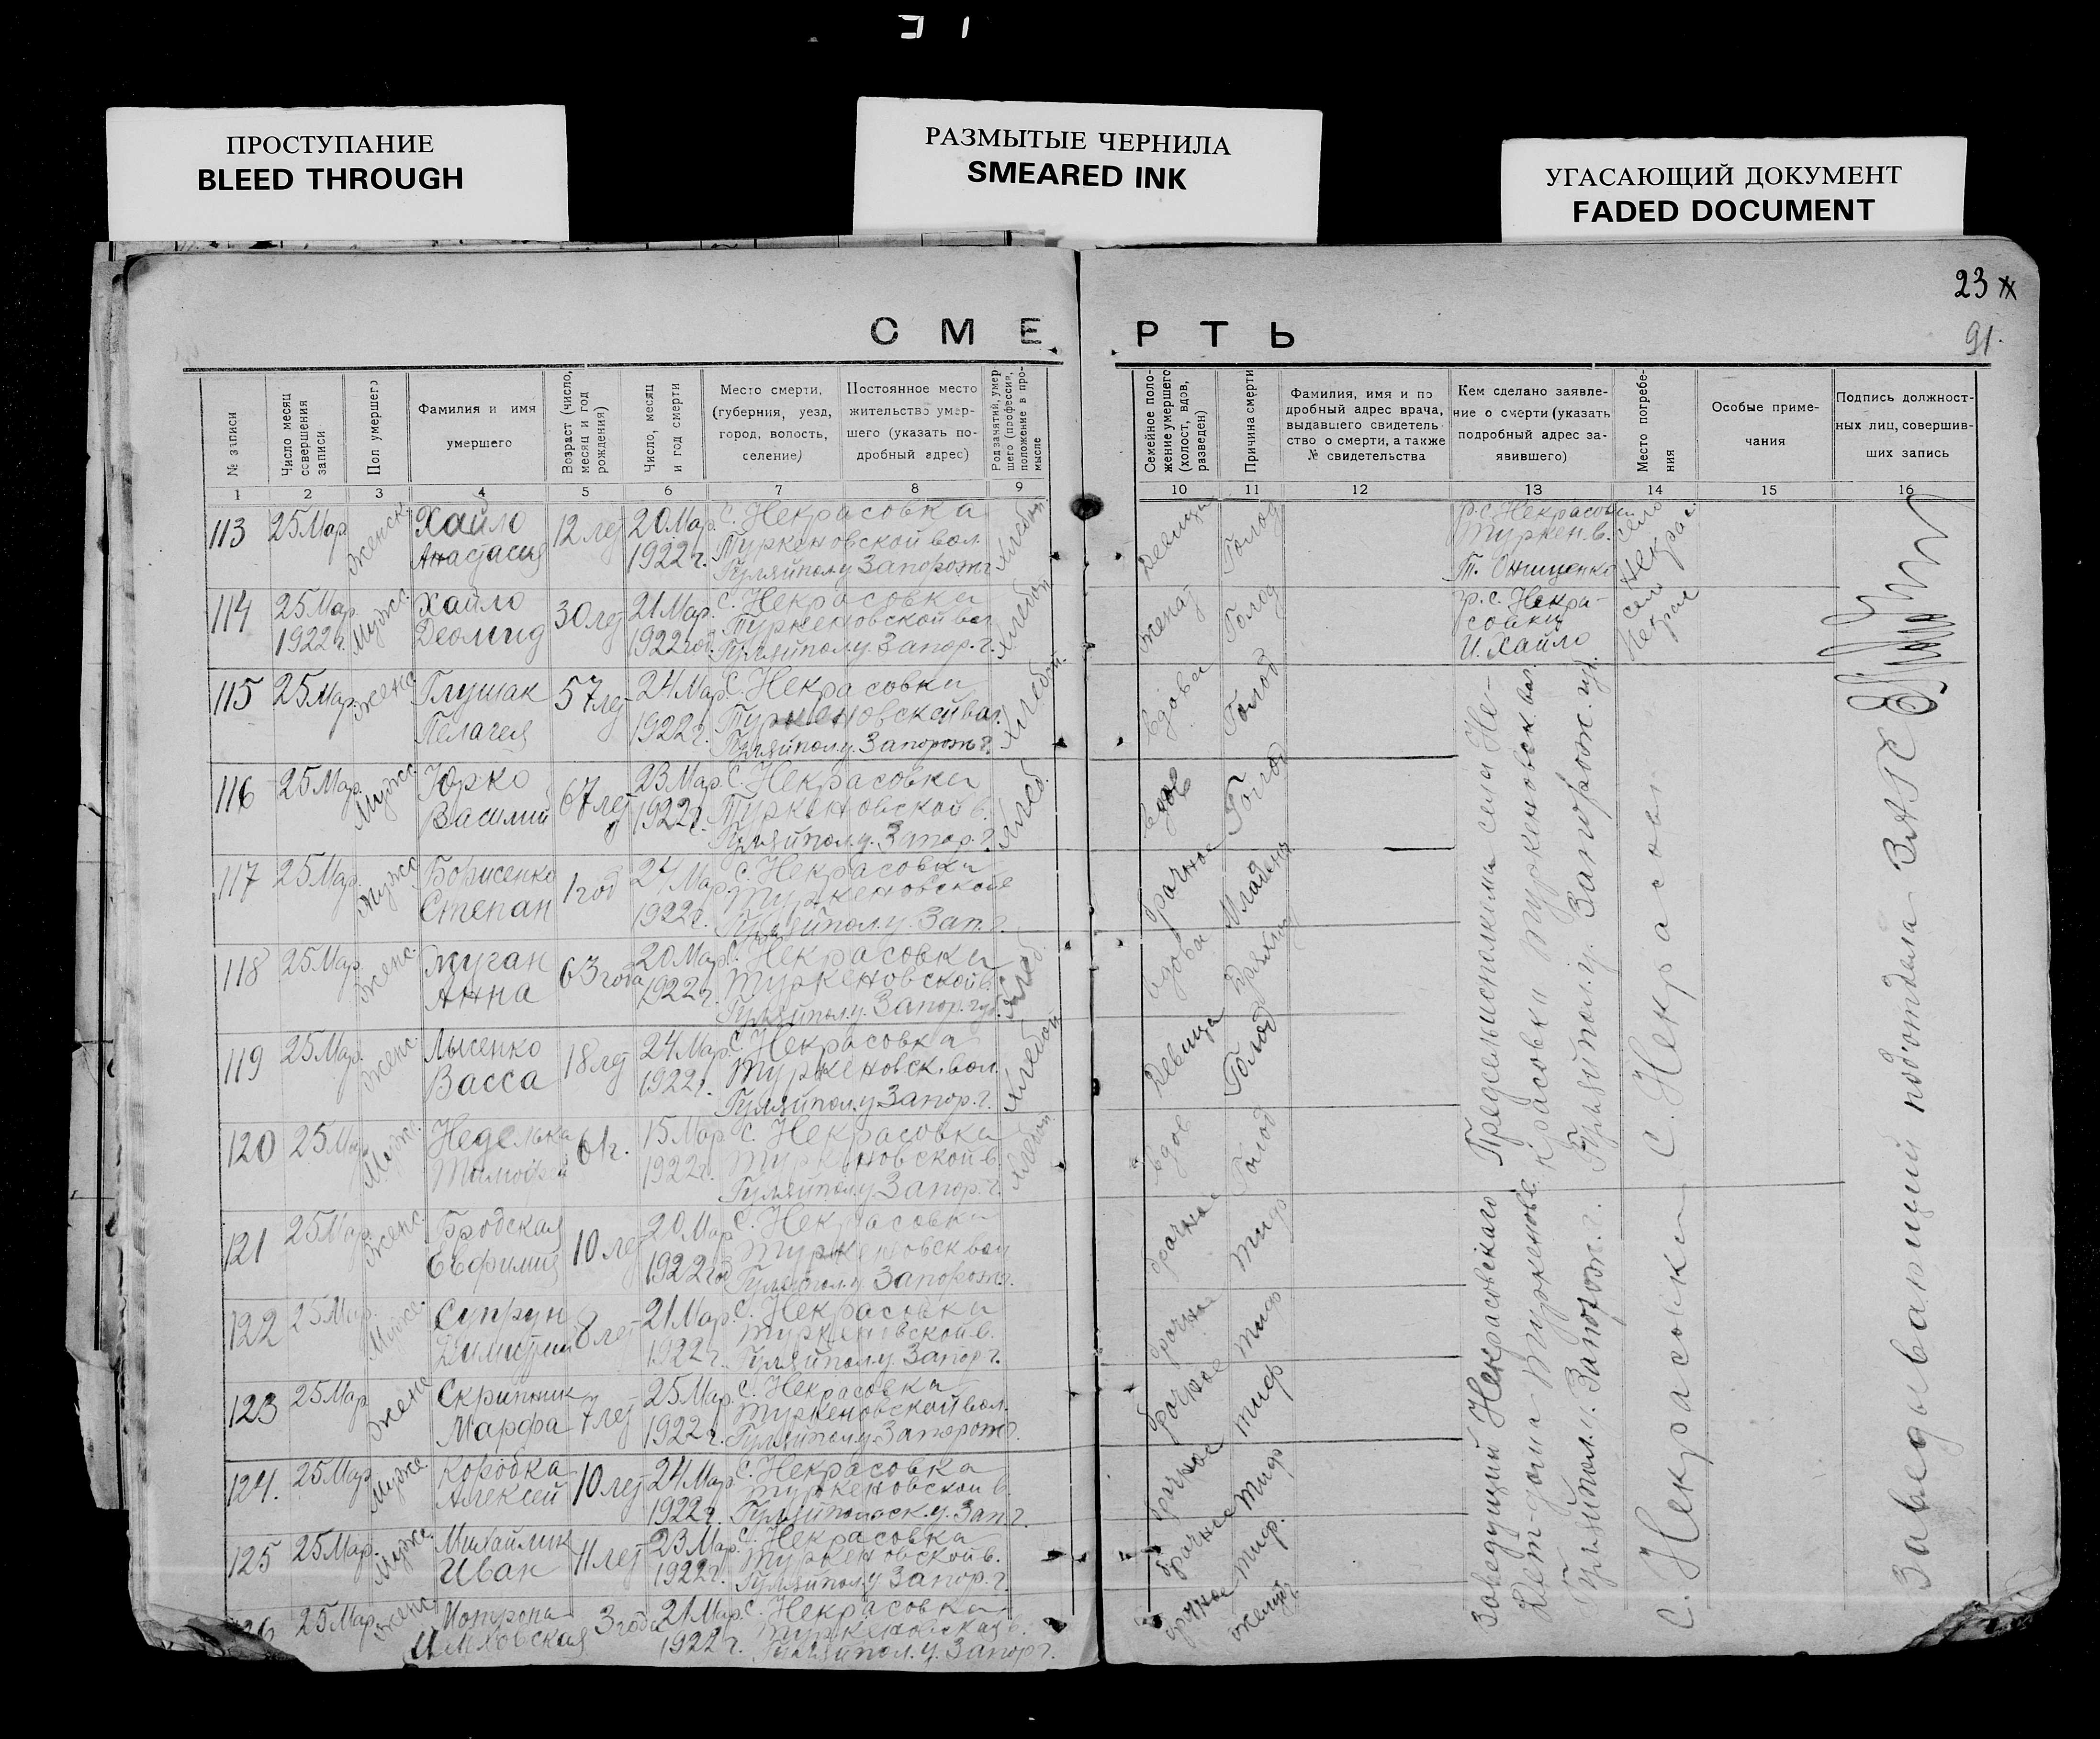 ПРОСТУПАНИЕ
BLEED THROUGH
РАЗМЫТЫЕ ЧЕРНИЛА
SMEARED INK
УГАСАЮЩИЙ ДОКУМЕНТ
FADED DOCUMENT
23
91.
СМЕРТЬ
№ записи
Число месяц совершения записи
Пол умершего
Фамилия и имя
умершего
Возраст (число, месяц и год рождения)
Число, месяц и год смерти
Место смерти,
(губерния, уезд,
город, волость,
селение)
Постоянное место
жительство умер-
шего (указать по-
дробный адрес)
Род занятий умершего (профессия, положение в промысле
Семейное положение умершего (холост, вдов, разведен)
Причина смерти
Фамилия, имя и по
дробный адрес врача,
выдавшего свидетель-
ство о смерти, а также
№ свидетельства
Кем сделано заявле-
ние о смерти (указать
подробный адрес за-
явившего)
Место погребе-
ния
Особые приме-
чания
Подпись должност-
ных лиц, совершив-
ших запись
1 2 3 4 5 6 7 8 9 10 11 12 13 14 15 16
113 25 Мар. Женск. Хайло Анастасия 12 лет 20 Мар. 1922 г. с. Некрасовка Туркеновской вол. Гуляйпол. у. Запорож г. Хлебоп. Девица Голод гр. с. Некрасовки Туркен. в. Т. Онищенко село Некрас.
114 25 Мар. 1922 г. Мужс. Хайло Деомид 30 лет 21 Мар. 1922 год. с. Некрасовки Туркеновской вол. Гуляйпол. у. Запор. г. Хлебоп. женат Голод гр. с. Некра-совки И. Хайло село Некрас
115 25 Мар. женс Глущак Пелагея 57 лет 24 Мар. 1922 г. С. Некрасовки Туркеновской вол. Гуляйпол. у. Запорож г. Хлебоп. вдова Голод
116 25 Мар. Мужс. Юрко Василий 67 лет 23 Мар. 1922 г. С. Некрасовки Туркеновской в. Гуляйпол. у. Запор. г. Хлеб. вдов Голод
117 25 Мар. Мужс Борисенко Степан 1 год 24 Мар. 1922 г. С. Некрасовки Туркеновской Гуляйпол. у. Зап. г.
118 25 Мар. Женс. Анна 63 года 20 Мар. 1922 г. С. Некрасовки Туркеновской в. Гуляйпол. у. Запор. губ. Хлеб. вдова
119 25 Мар. Женс. Лысенко Васса 18 лет 24 Мар. 1922 г. С. Некрасовка Туркеновск. вол. Гуляйпол. у. Запор. г. Хлебоп Девица Голод
120 25 Мар Мужс. Неделька Тимофей 61 г. 15 Мар 1922 г. С. Некрасовка Туркеновской в. Гуляйпол. у. Запор. г. Хлебоп. вдов Голод
121 25 Мар. женс. Бродская Евфимия 10 лет 20 Мар 1922 год С. Некрасовки Туркеновск вол Гуляйпол. у Запорож г. Тиф
122 25 Мар. Мужс. Супрун Димитрий 8 лет 21 Мар. 1922 г. С. Некрасовки Туркеновской в. Гуляйпол. у. Запор г. Тиф
123 25 Мар женс Скрипник Марфа 7 лет 25 Мар. 1922 г. С. Некрасовка Туркеновской вол. Гуляйпол. у. Запорож г. Тиф
124. 25 Мар Мужс. Коробка Алексей 10 лет 24 Мар. 1922 г. С. Некрасовка Туркеновской в. Гуляйпольск. у. Зап. г. Тиф
125 25 Мар. Мужс. Михайлик Иван 11 лет 23 Мар. 1922 г. С. Некрасовка Туркеновской в. Гуляйпол. у Запор. г. Тиф.
25 Мар. женс 3 года 21 Мар. 1922 г. С. Некрасовка Гуляйпол. у. Запор г.
Предсельисполкома села Не-
красовки Туркеновск. вол.
Гуляйпол. у. Запорож. гу.
Заведущий Некрасовскаго
Дет-дома Туркеновс в.
Гуляйпол. у. Запорож. г.
С. Некрасовк
С. Некрасовки
Заведывающий подотдела ЗАГС